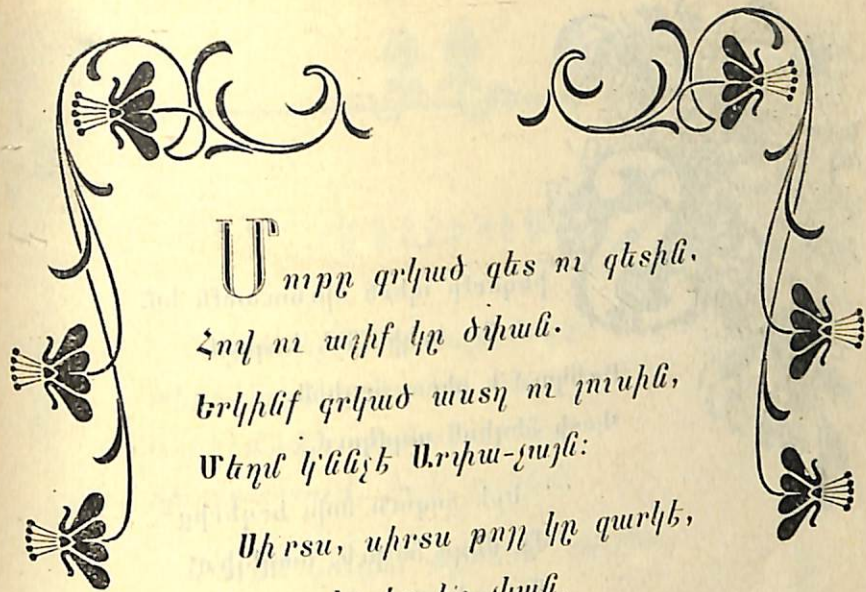 Մութը գրկած գետ ու գետին.
Հով ու ալիք կը ծփան.
Երկինք գրկած աստղ ու լուսին,
Մեղմ կ՚ննջէ Արփա-չայն:
Սիրտս, սիրտս թող կը զարկէ,